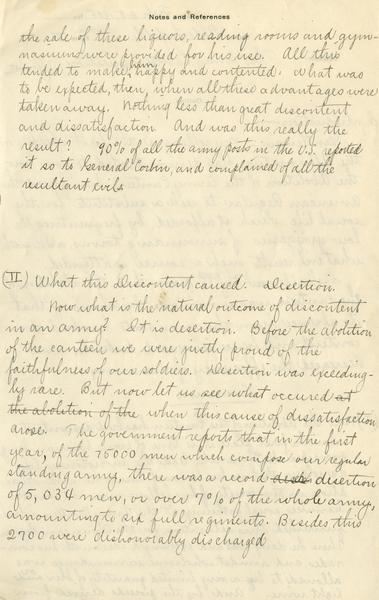 Notes and References
the sale of these liquors, reading rooms and gym-
nasiums were provided for his use. All this
tended to make him happy and contented. What was
to be expected, then, when all these advantages were
taken away. Nothing less than great discontent
and dissatisfaction And was this really the
result? 90% of all the army posts in the U.S. reported
it so to General Corbin, and complained of all the
resultant evils
(II) What this Discontent caused. Desertion.
Now what is the natural outcome of discontent
in an army? It is desertion. Before the abolition
of the canteen we were justly proud of the
faithfulness of our soldiers. Desertion was exceeding-
ly rare. But now let us see what occured at
the abolition of the when this cause of dissatisfaction
arose. The government reports that in the first
year, of the 75000 men which compose our regular
standing army, there was a record disertion
of 5,034 men, or over 7% of the whole army,
amounting to six full regiments. Besides this
2700 were dishonorably discharged